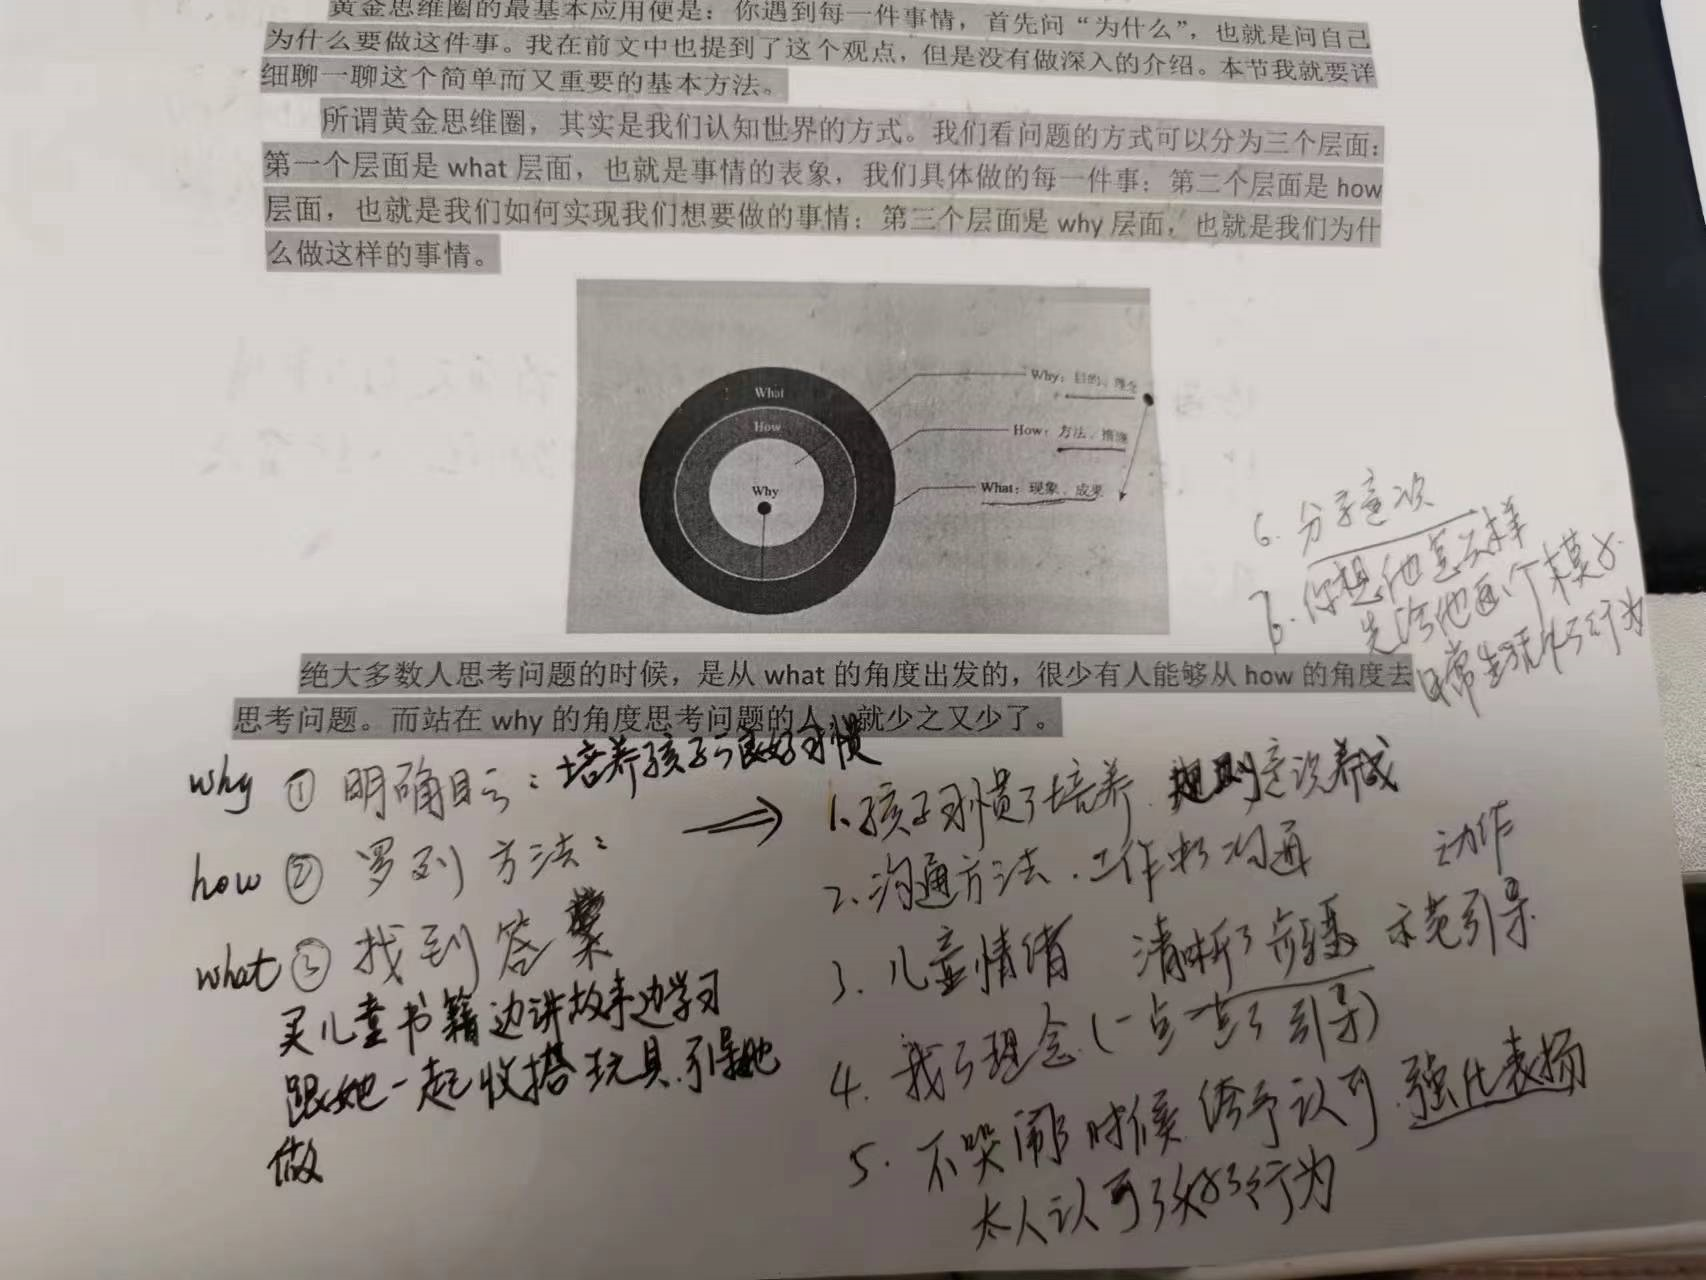 黄金思维圈的最基本应用便是：你遇到每一件事情，首先问“为什么”，也就是问自己
为什么要做这件事。我在前文中也提到了这个观点，但是没有做深入的介绍。本节我就要详
细聊一聊这个简单而又重要的基本方法。
所谓黄金思维圈，其实是我们认知世界的方式。我们看问题的方式可以分为三个层面：
第一个层面是 what 层面，也就是事情的表象，我们具体做的每一件事；第二个层面是 how
层面，也就是我们如何实现我们想要做的事情；第三个层面是 why 层面，也就是我们为什
么做这样的事情。
What
How
Why
Why：目的、理念
How：方法、措施
What：现象、成果
6. 分享意识
7. 你想他怎么样
先给他画个模子
日常生活的行为
绝大多数人思考问题的时候，是从 what 的角度出发的，很少有人能够从 how 的角度去
思考问题。而站在 why 的角度思考问题的人，就少之又少了。
why ① 明确目的：培养孩子的良好习惯
how ② 罗列方法：
what ③ 找到答案
买儿童书籍边讲故事边学习
跟她一起收搭玩具.引导她
做
1. 孩子习惯的培养. 规则意识养成
2. 沟通方法. 工作中的沟通
动作
3. 儿童情绪 清晰的步骤 示范引导
4. 我的理念.(一点一点的引导)
5. 不哭闹的时候 给予认可.强化表扬
大人认可的好的行为